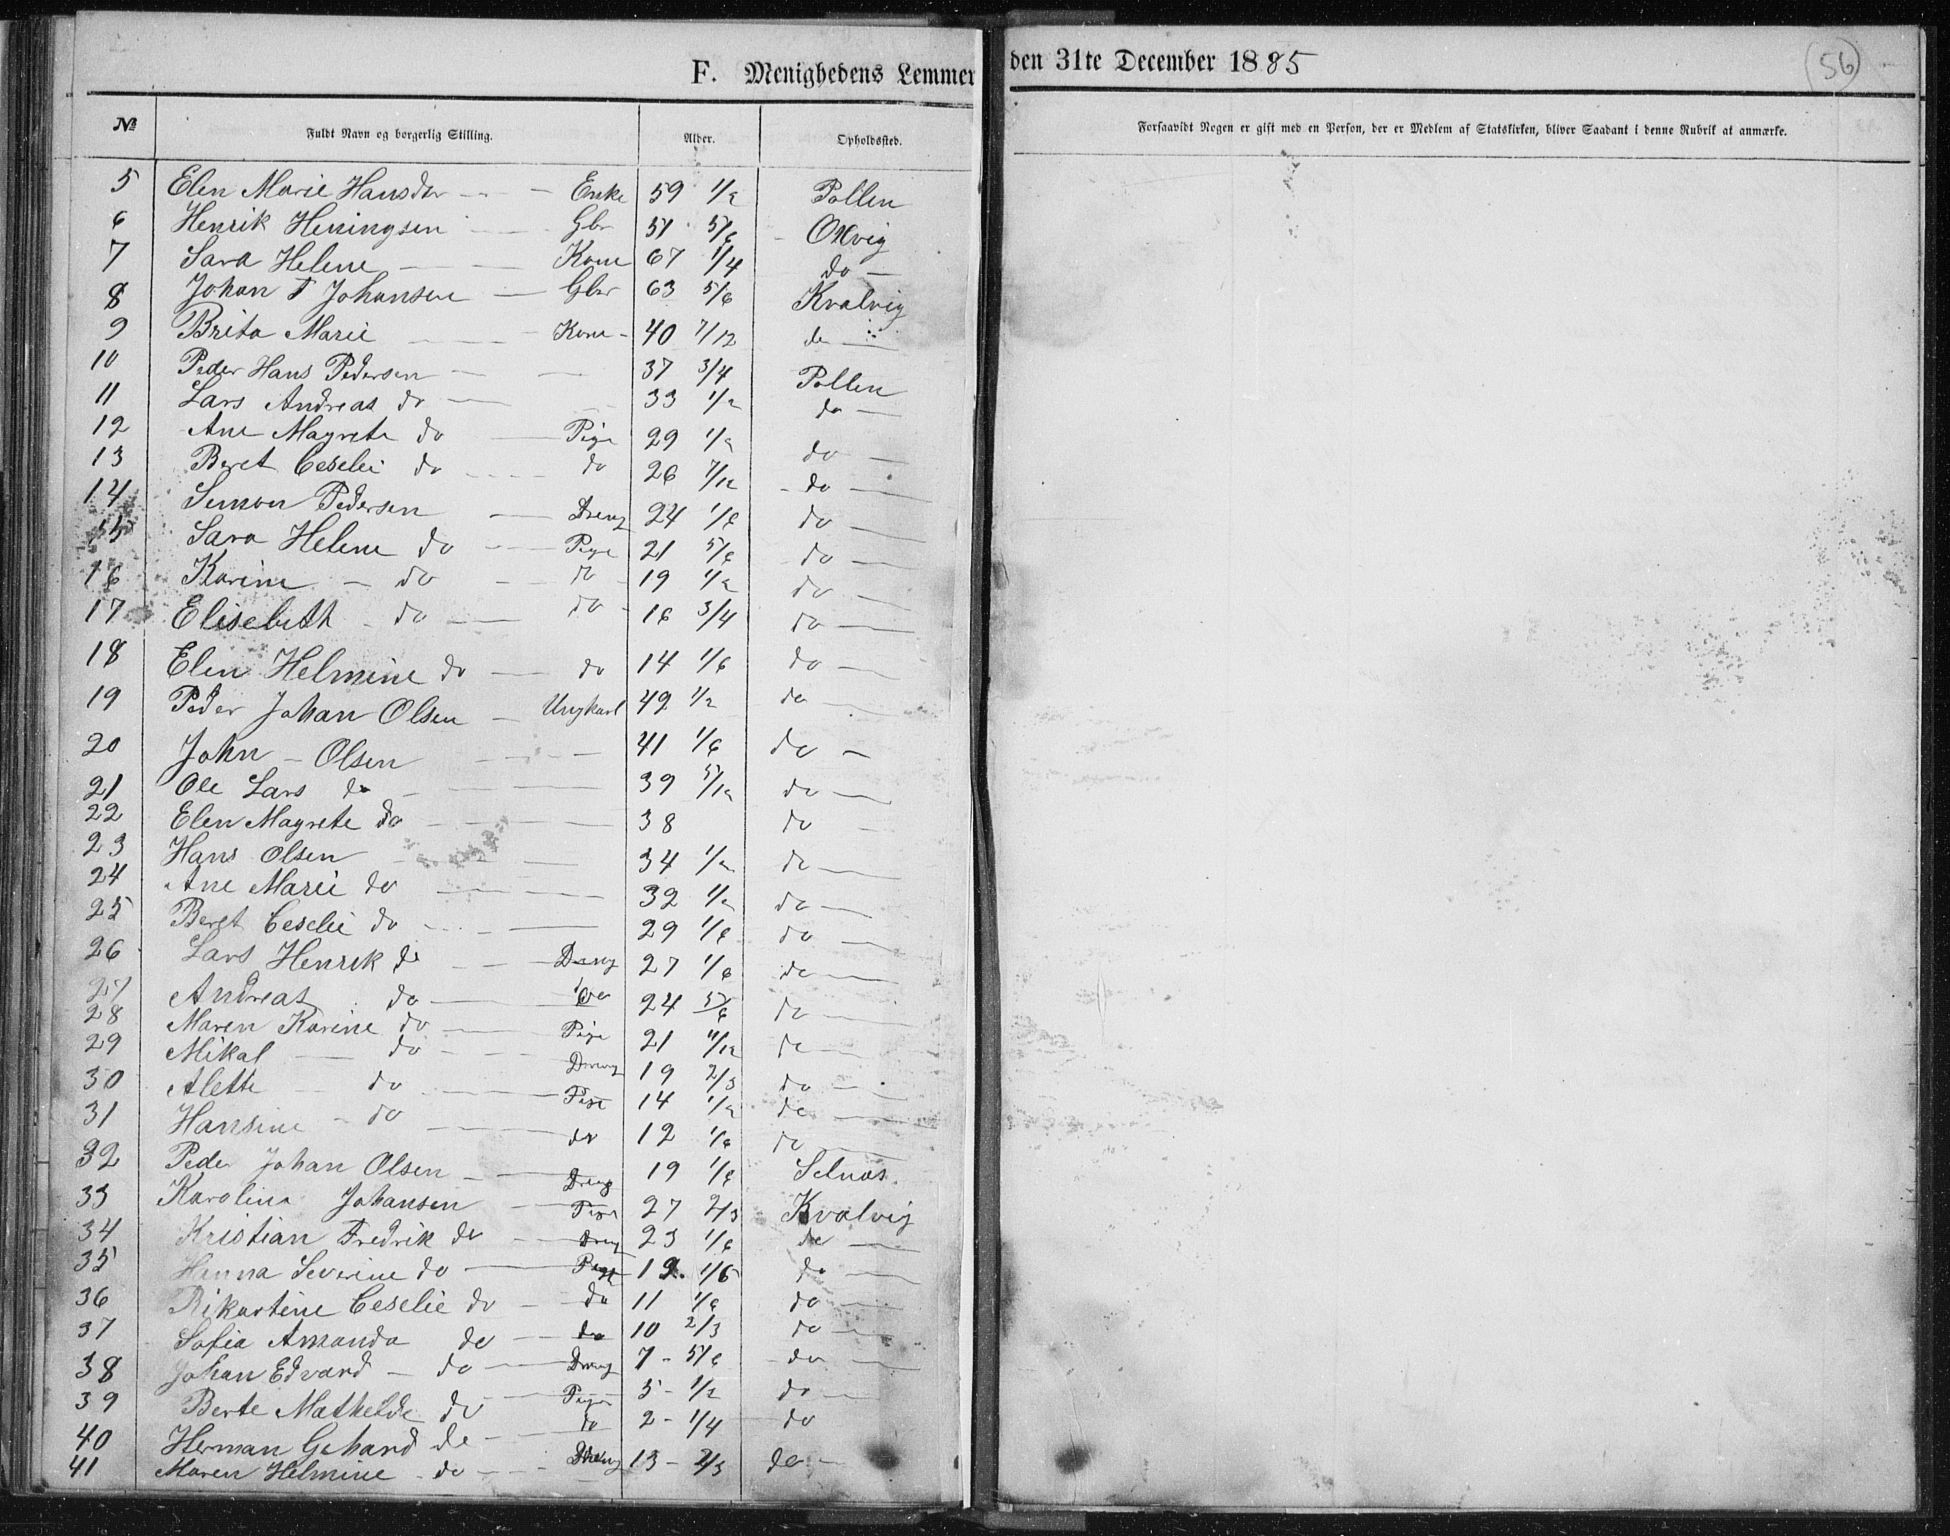 F. Menighedens Lemmer den 31te December 1885
56
№ Fuldt Navn og borgerlig Stilling. Alder. Opholdssted. Forsaavidt Nogen er gift med en Person, der er Medlem af Statskirken, bliver Saadant i denne Rubrik at anmærke.
5 Elen Marie Hansdtr Enke 59 1/2 Pollen
6 Henrik Heningsen Gbr 51 5/6 Oxvig
7 Sara Helene Kone 67 1/4 do
8 Johan F Johansen Gbr 63 5/6 Kvalvig
9 Brita Marie Kone 40 7/12 do
10 Peder Hans Pedersen 37 3/4 Pollen
11 Lars Andreas do 33 1/2 do
12 Ane Magrete do Pige 29 1/2 do
13 Beret Ceselie do do 26 7/12 do
14 Simon Pedersen Dreng 24 1/6 do
15 Sara Helene do Pige 21 5/6 do
16 Karine do do 19 1/2 do
17 Elisebeth do do 16 3/4 do
18 Elen Helmine do do 14 1/6 do
19 Peder Johan Olsen Ungkarl 49 1/2 do
20 John Olsen 41 1/6 do
21 Ole Lars do 39 5/12 do
22 Elen Magrete do 38 do
23 Hans Olsen 34 1/2 do
24 Ane Marie do 32 1/2 do
25 Beret Ceselie do 29 1/6 do
26 Lars Henrik do Dreng 27 1/6 do
27 Andreas do do 24 5/6 do
28 Maren Karine do Pige 21 11/12 do
29 Mikal do Dreng 19 2/3 do
30 Alette do Pige 14 1/2 do
31 Hansine do do 12 1/6 do
32 Peder Johan Olsen Dreng 19 1/6 Selnæs
33 Karolina Johansen Pige 27 2/3 Kvalvig
34 Kristian Fredrik do Dreng 23 1/6 do
35 Hanna Severine do Pige 19. 1/6 do
36 Rikartine Ceselie do do 11 1/6 do
37 Sofia Amanda do do 10 2/3 do
38 Johan Edvard do Dreng 7 - 5/6 do
39 Berte Mathelde do Pige 5 - 1/2 do
40 Herman Gehard do do 2 - 1/4 do
41 Maren Helmine do Dreng 13 - 2/3 do